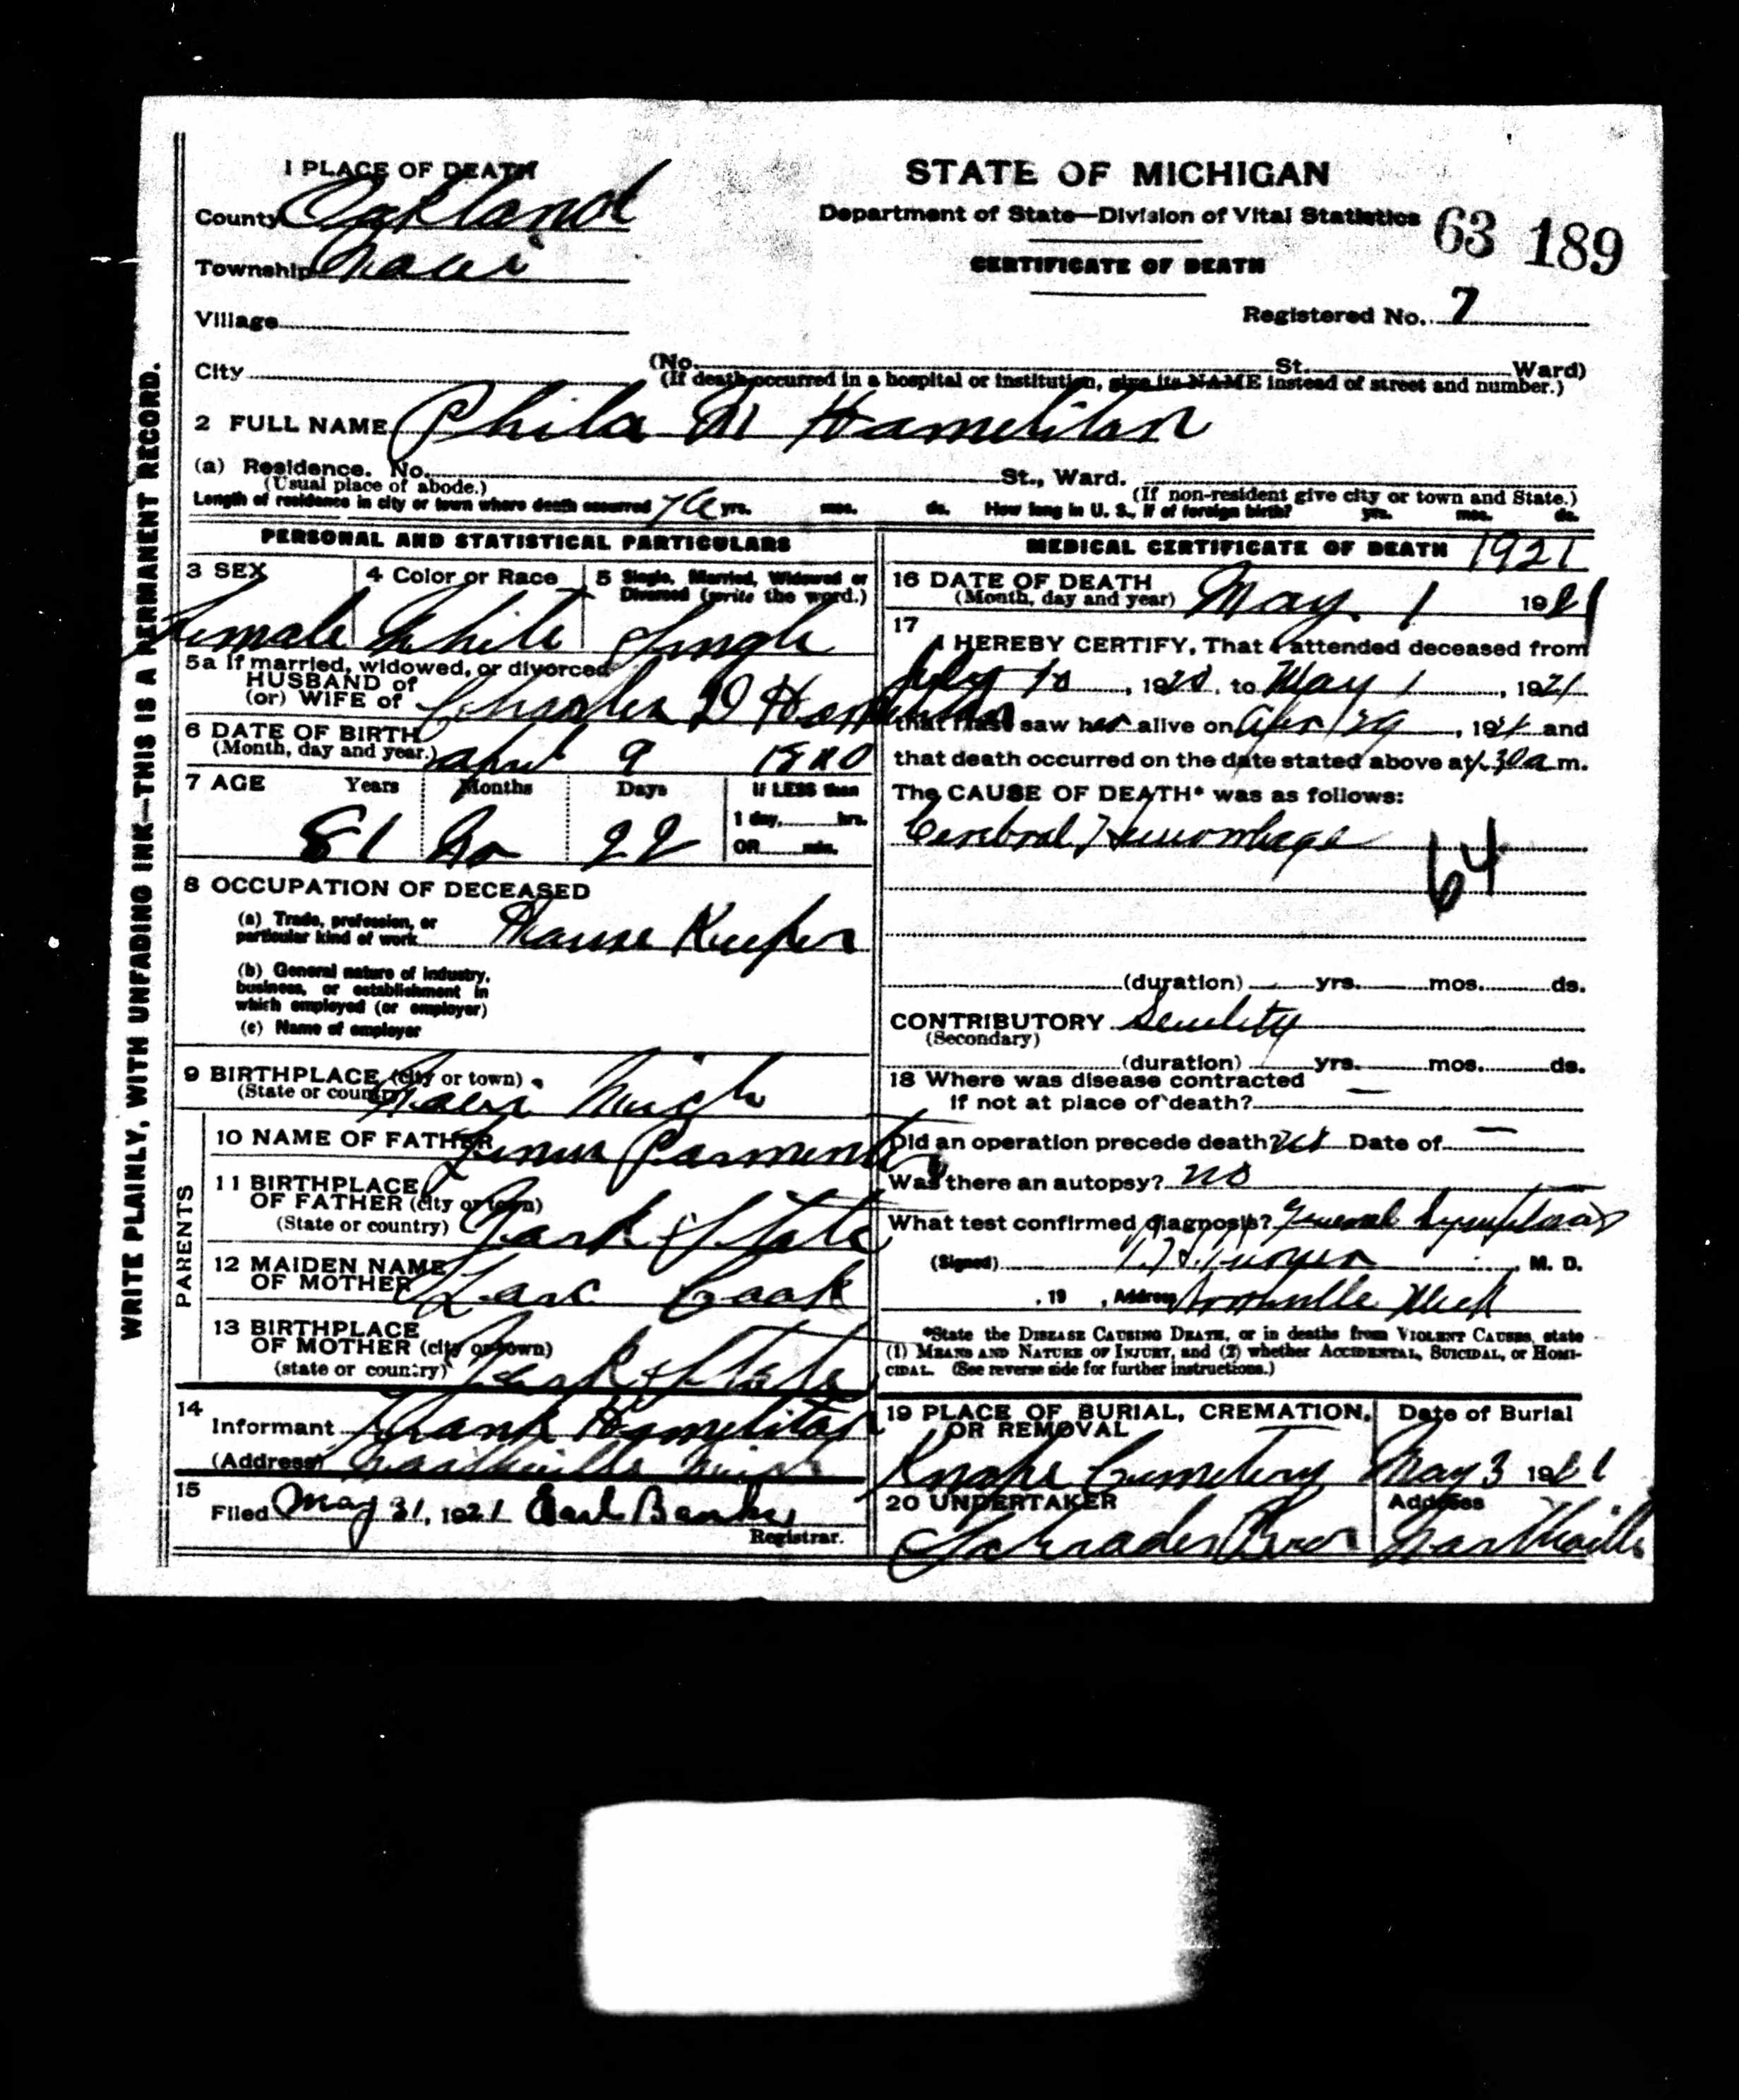 1 PLACE OF DEATH
County Oakland
Township Novi
Village
City
STATE OF MICHIGAN
Department of State—Division of Vital Statistics
63 189
CERTIFICATE OF DEATH
Registered No. 7
(No. St. Ward)
(If death occurred in a hospital or institution, give its NAME instead of street and number.)
2 FULL NAME Phila M Hameliton
(a) Residence. No. St., Ward.
(Usual place of abode.) (If non-resident give city or town and State.)
Length of residence in city or town where death occurred yrs. mos. ds. How long in U. S., if of foreign birth? yrs. mos. ds.
PERSONAL AND STATISTICAL PARTICULARS
3 SEX
Female
4 Color or Race
White
5 Single, Married, Widowed or
Divorced (write the word.)
Single
5a If married, widowed, or divorced
HUSBAND of
(or) WIFE of Charles D Hamelitan
6 DATE OF BIRTH
(Month, day and year.) April 9
7 AGE Years Months Days
81 No 22
If LESS than
1 day, hrs.
OR min.
8 OCCUPATION OF DECEASED
(a) Trade, profession, or
particular kind of work House Keeper
(b) General nature of industry,
business, or establishment in
which employed (or employer)
(c) Name of employer
9 BIRTHPLACE (city or town)
(State or country) Novi Mich
PARENTS
10 NAME OF FATHER Linus Parmenter
11 BIRTHPLACE
OF FATHER (city or town)
(State or country) York State
12 MAIDEN NAME
OF MOTHER Cook
13 BIRTHPLACE
OF MOTHER (city or town)
(state or country) York State
14
Informant Frank Hamelitan
(Address) Northville Mich
15
Filed May 31, 1921 Earl Banks
Registrar.
MEDICAL CERTIFICATE OF DEATH 1921
16 DATE OF DEATH
(Month, day and year) May 1 1921
17
I HEREBY CERTIFY, That I attended deceased from
July 10, 1920, to May 1, 1921
that I last saw her alive on Apr 29, 1921 and
that death occurred on the date stated above at 1.30 a m.
The CAUSE OF DEATH* was as follows:
Cerebral Hemorrhage
64
(duration) yrs. mos. ds.
CONTRIBUTORY Senility
(Secondary)
(duration) yrs. mos. ds.
18 Where was disease contracted
if not at place of death? —
Did an operation precede death? no Date of —
Was there an autopsy? no
What test confirmed diagnosis? General Symptoms
(Signed) Turner, M. D.
, 19 , Address Northville Mich
*State the DISEASE CAUSING DEATH, or in deaths from VIOLENT CAUSES, state
(1) MEANS AND NATURE OF INJURY, and (2) whether ACCIDENTAL, SUICIDAL, or HOMI-
CIDAL. (See reverse side for further instructions.)
19 PLACE OF BURIAL, CREMATION,
OR REMOVAL
Knapp Cemetery
Date of Burial
May 3 1921
20 UNDERTAKER
Schrader Bros
Address
Northville
WRITE PLAINLY, WITH UNFADING INK—THIS IS A PERMANENT RECORD.